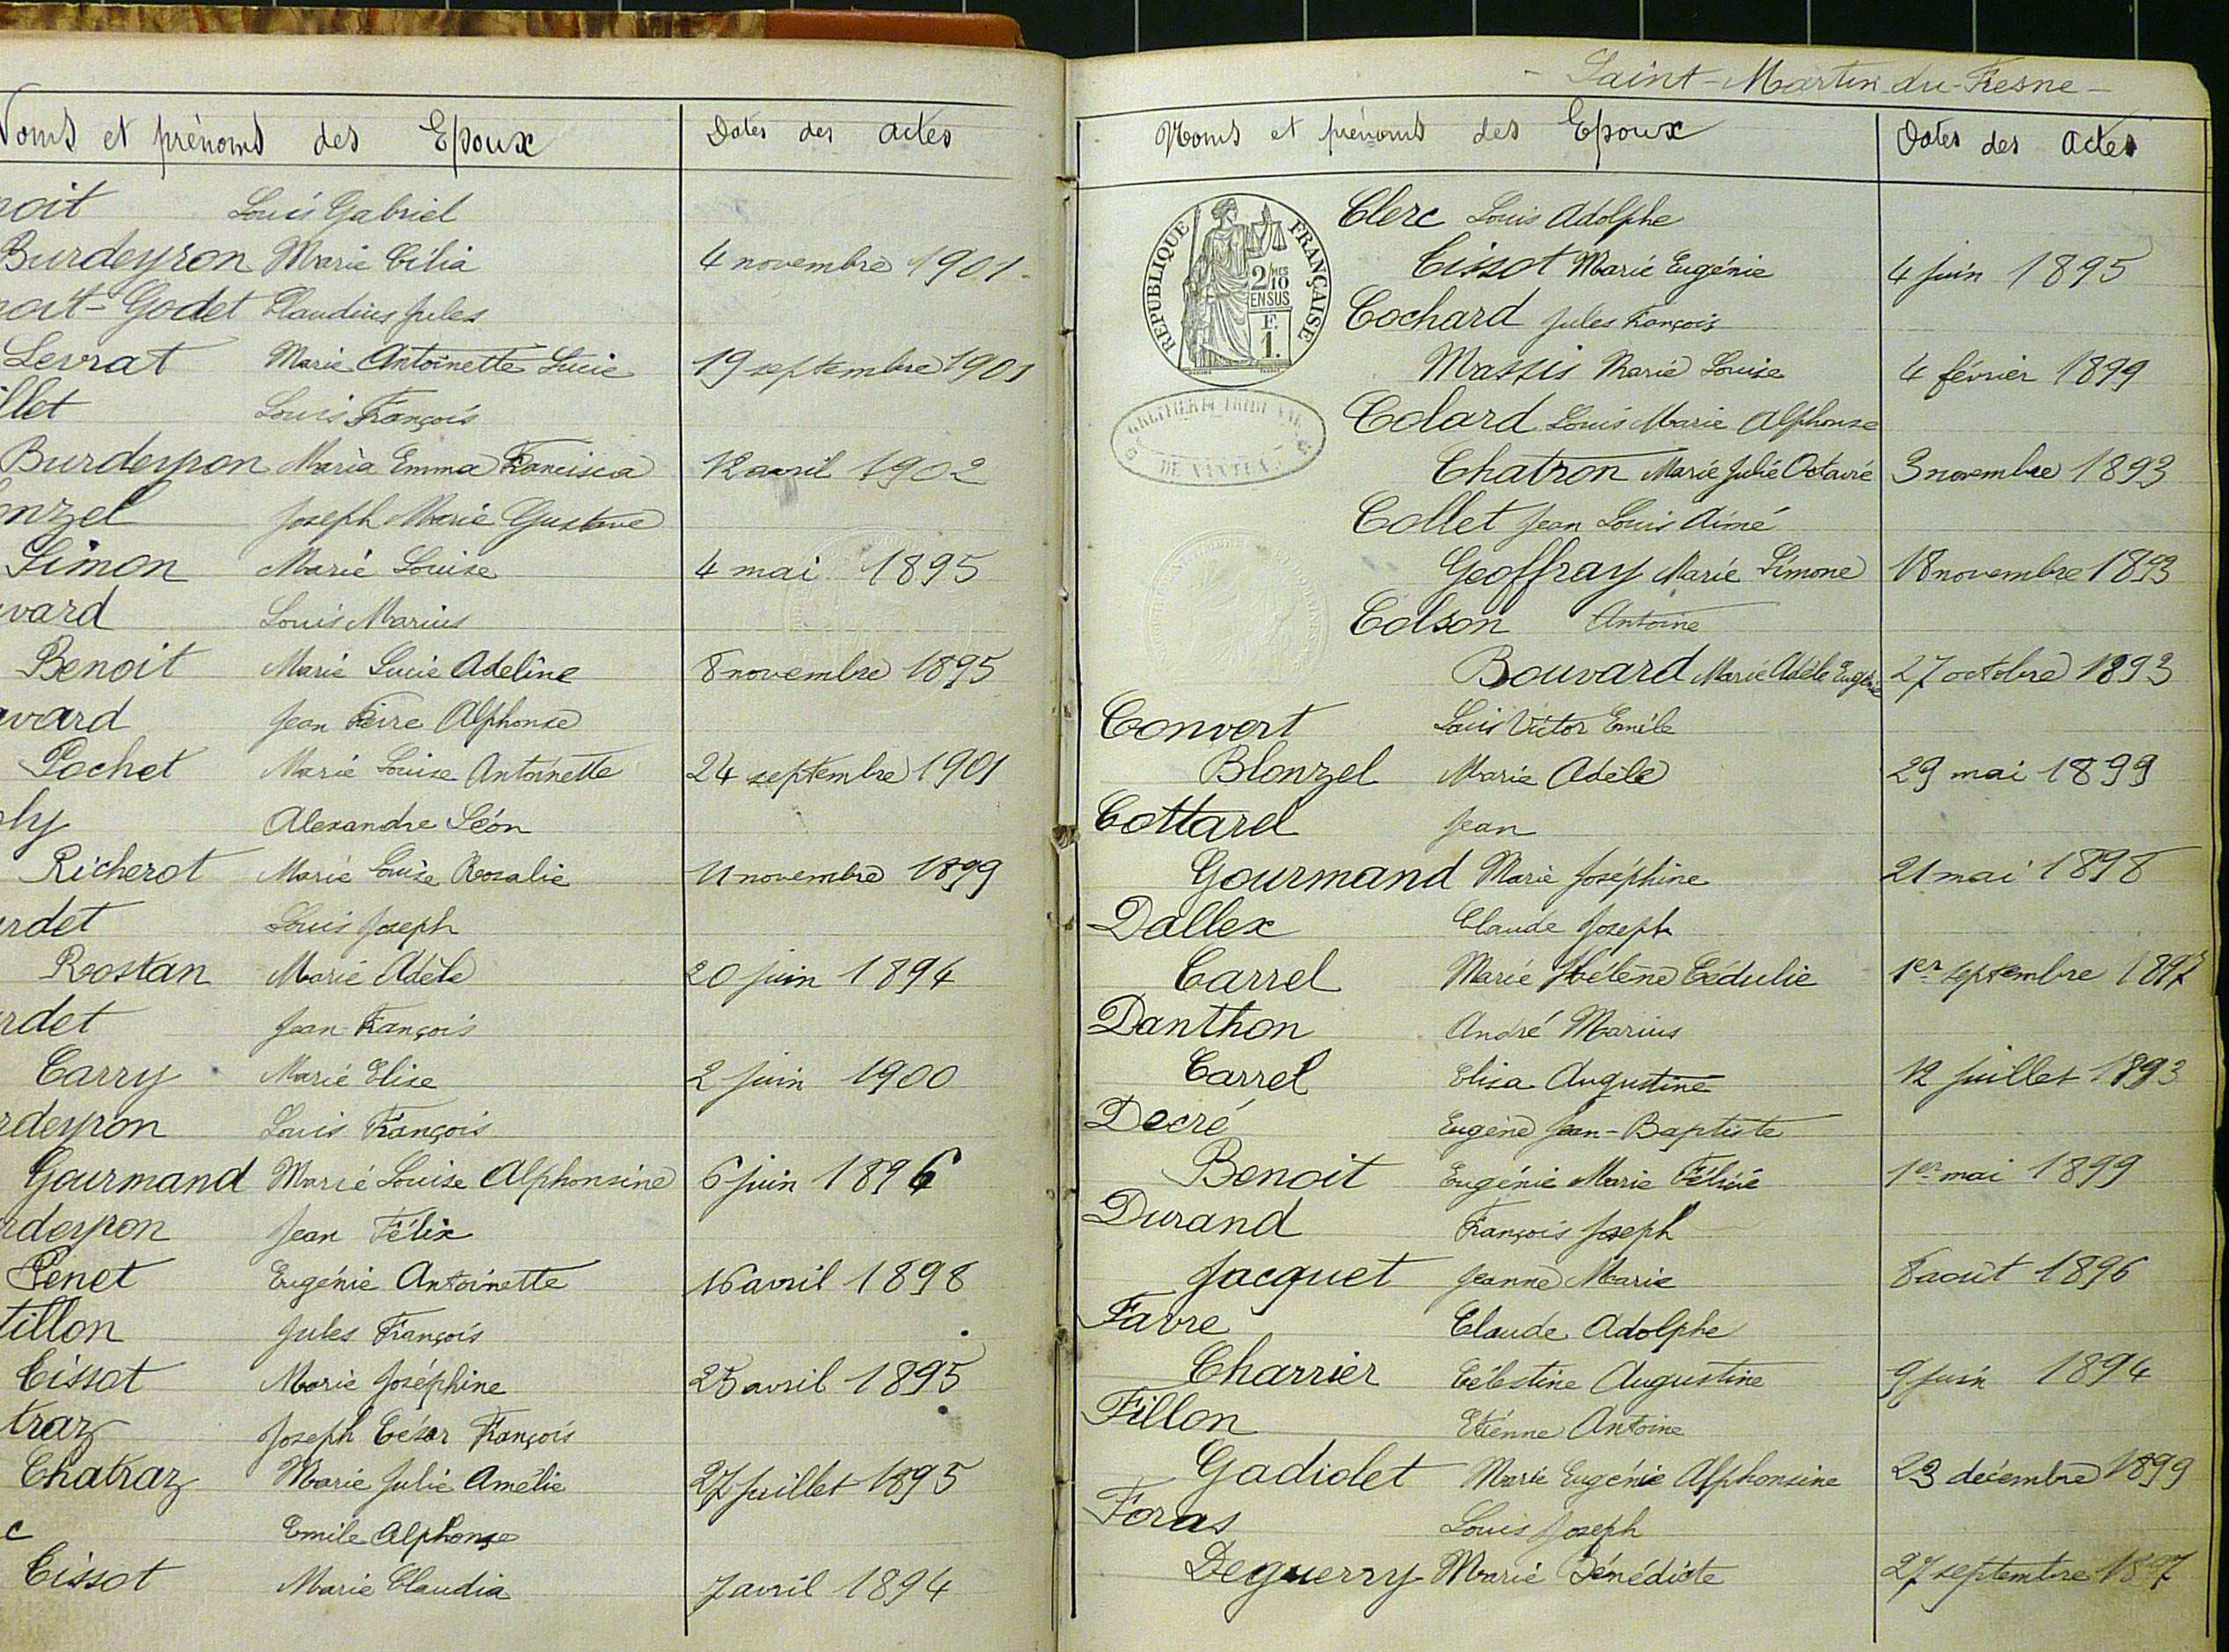 Noms et prénoms des Epoux Dates des actes
noit Louis Gabriel
Burdeyron Marie Célia 4 novembre 1901
noit-Godet Claudius Jules
Levrat Marie Antoinette Lucie 19 septembre 1901
illet Louis François
Burdeyron Maria Emma Francisca 12 avril 1902
onzel Joseph Marie Gustave
Simon Marie Louise 4 mai 1895
uvard Louis Marius
Benoit Marie Lucie Adeline 8 novembre 1895
uvard Jean Pierre Alphonse
Pochet Marie Louise Antoinette 24 septembre 1901
ly Alexandre Léon
Richerot Marie Louise Rosalie 11 novembre 1899
rdet Louis Joseph
Rostan Marie Adèle 20 juin 1894
rdet Jean François
Carry Marie Elise 2 juin 1900
rdeyron Louis François
Gourmand Marie Louise Alphonsine 6 juin 1896
rdeyron Jean Félix
Penet Eugénie Antoinette 16 avril 1898
tillon Jules François
Cissot Marie Joséphine 25 avril 1895
traz Joseph César François
Chatraz Marie Julie Amélie 27 juillet 1895
c Emile Alphonse
Cissot Marie Claudia 7 avril 1894
- Saint-Martin-du-Fresne -
Noms et prénoms des Epoux Dates des actes
REPUBLIQUE FRANÇAISE
2/10 MES
EN SUS
F.
1.
DE NANTUA
Clerc Louis Adolphe
Cissot Marie Eugénie 4 juin 1895
Cochard Jules François
Massis Marie Louise 4 février 1899
Colard Louis Marie Alphonse
Chatron Marie Julie Octavie 3 novembre 1893
Collet Jean Louis Aimé
Geoffray Marie Simone 18 novembre 1893
Colson Antoine
Bouvard Marie Adèle Eugénie 27 octobre 1893
Convert Louis Victor Emile
Blonzel Marie Adèle 29 mai 1899
Cottarel Jean
Gourmand Marie Joséphine 21 mai 1898
Dallex Claude Joseph
Carrel Marie Hélène Cédulie 1er septembre 1897
Danthon André Marius
Carrel Elisa Augustine 12 juillet 1893
Decré Eugène Jean-Baptiste
Benoit Eugénie Marie Félicie 1er mai 1899
Durand François Joseph
Jacquet Jeanne Marie 8 août 1896
Favre Claude Adolphe
Charrier Célestine Augustine 9 juin 1894
Fillon Etienne Antoine
Gadiolet Marie Eugénie Alphonsine 23 décembre 1899
Foras Louis Joseph
Deguerry Marie Bénédicte 27 septembre 1897